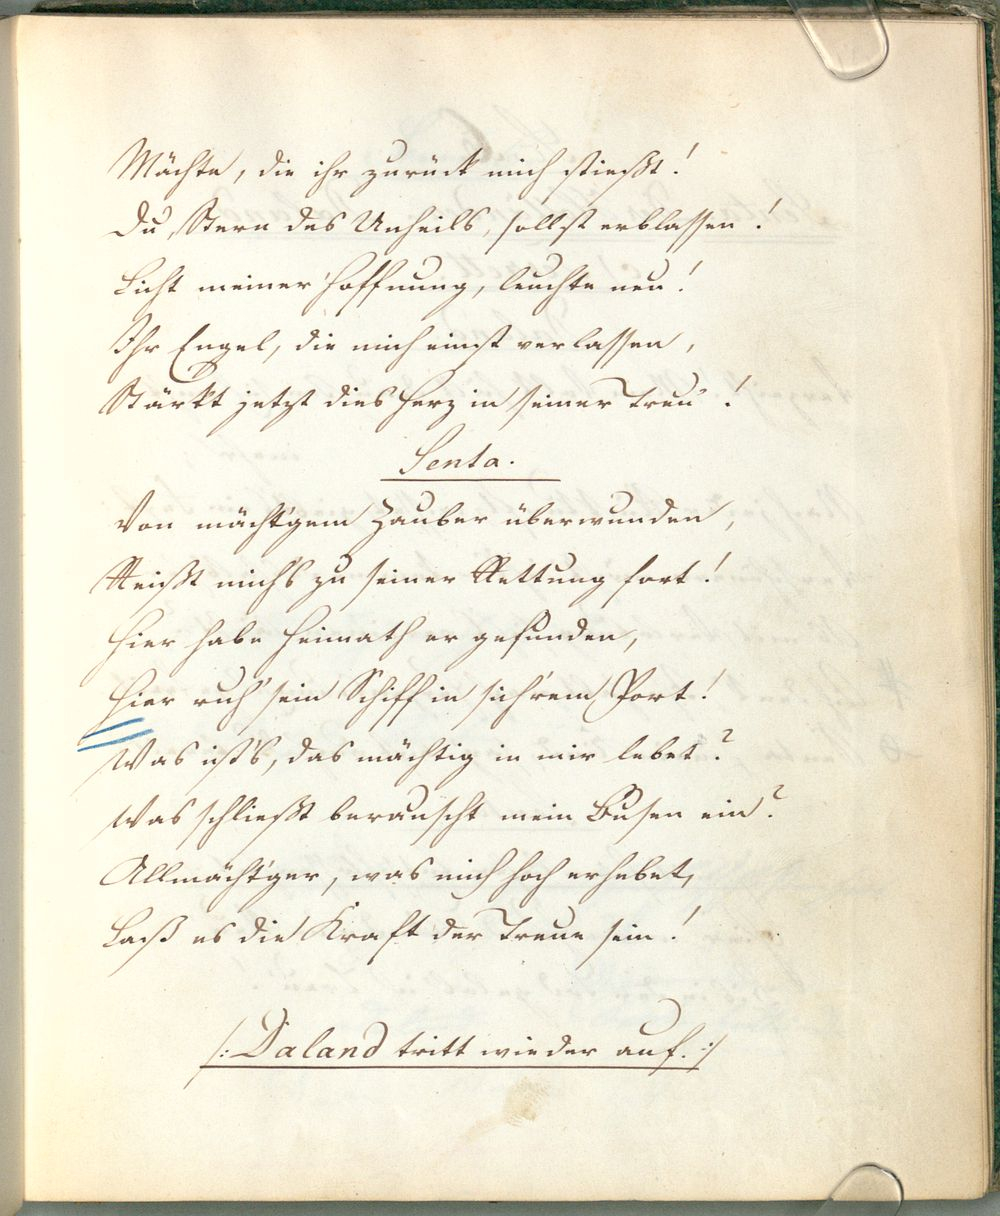 Mächte, die ihr zurück mich stießt!
Du, Stern des Unheils, sollst erblassen!
Licht meiner Hoffnung, leuchte neu!
Ihr Engel, die mich einst verlassen,
Stärkt jetzt dies Herz in seiner Treu'!
Senta.
Von mächt'gem Zauber überwunden,
Reißt mich's zu seiner Rettung fort!
Hier habe Heimath er gefunden,
Hier ruh' sein Schiff in sich'rem Port!
Was ist's, das mächtig in mir lebet?
Was schließt berauscht mein Busen ein?
Allmächt'ger, was mich hoch erhebet,
Laß es die Kraft der Treue sein!
/: Daland tritt wieder auf. :/